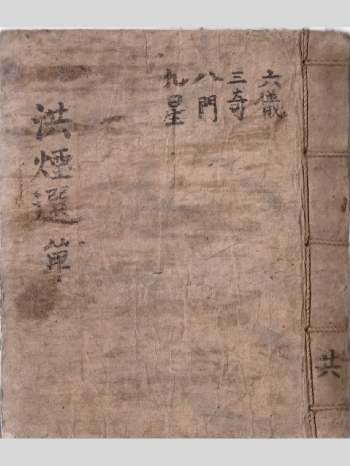 六儀
三奇
八門
九星
洪煙選算
共